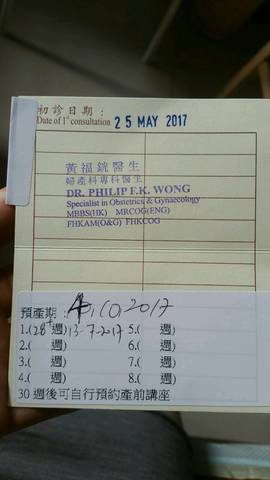 初診日期：
Date of 1st consultation 25 MAY 2017
黃福銧醫生
婦產科專科醫生
DR. PHILIP F.K. WONG
Specialist in Obstetrics & Gynaecology
MBBS(HK) MRCOG(ENG)
FHKAM(O&G) FHKCOG
預產期： 2017
1.(28+週) 13-7-2017 5.( 週)
2.( 週) 6.( 週)
3.( 週) 7.( 週)
4.( 週) 8.( 週)
30 週後可自行預約產前講座